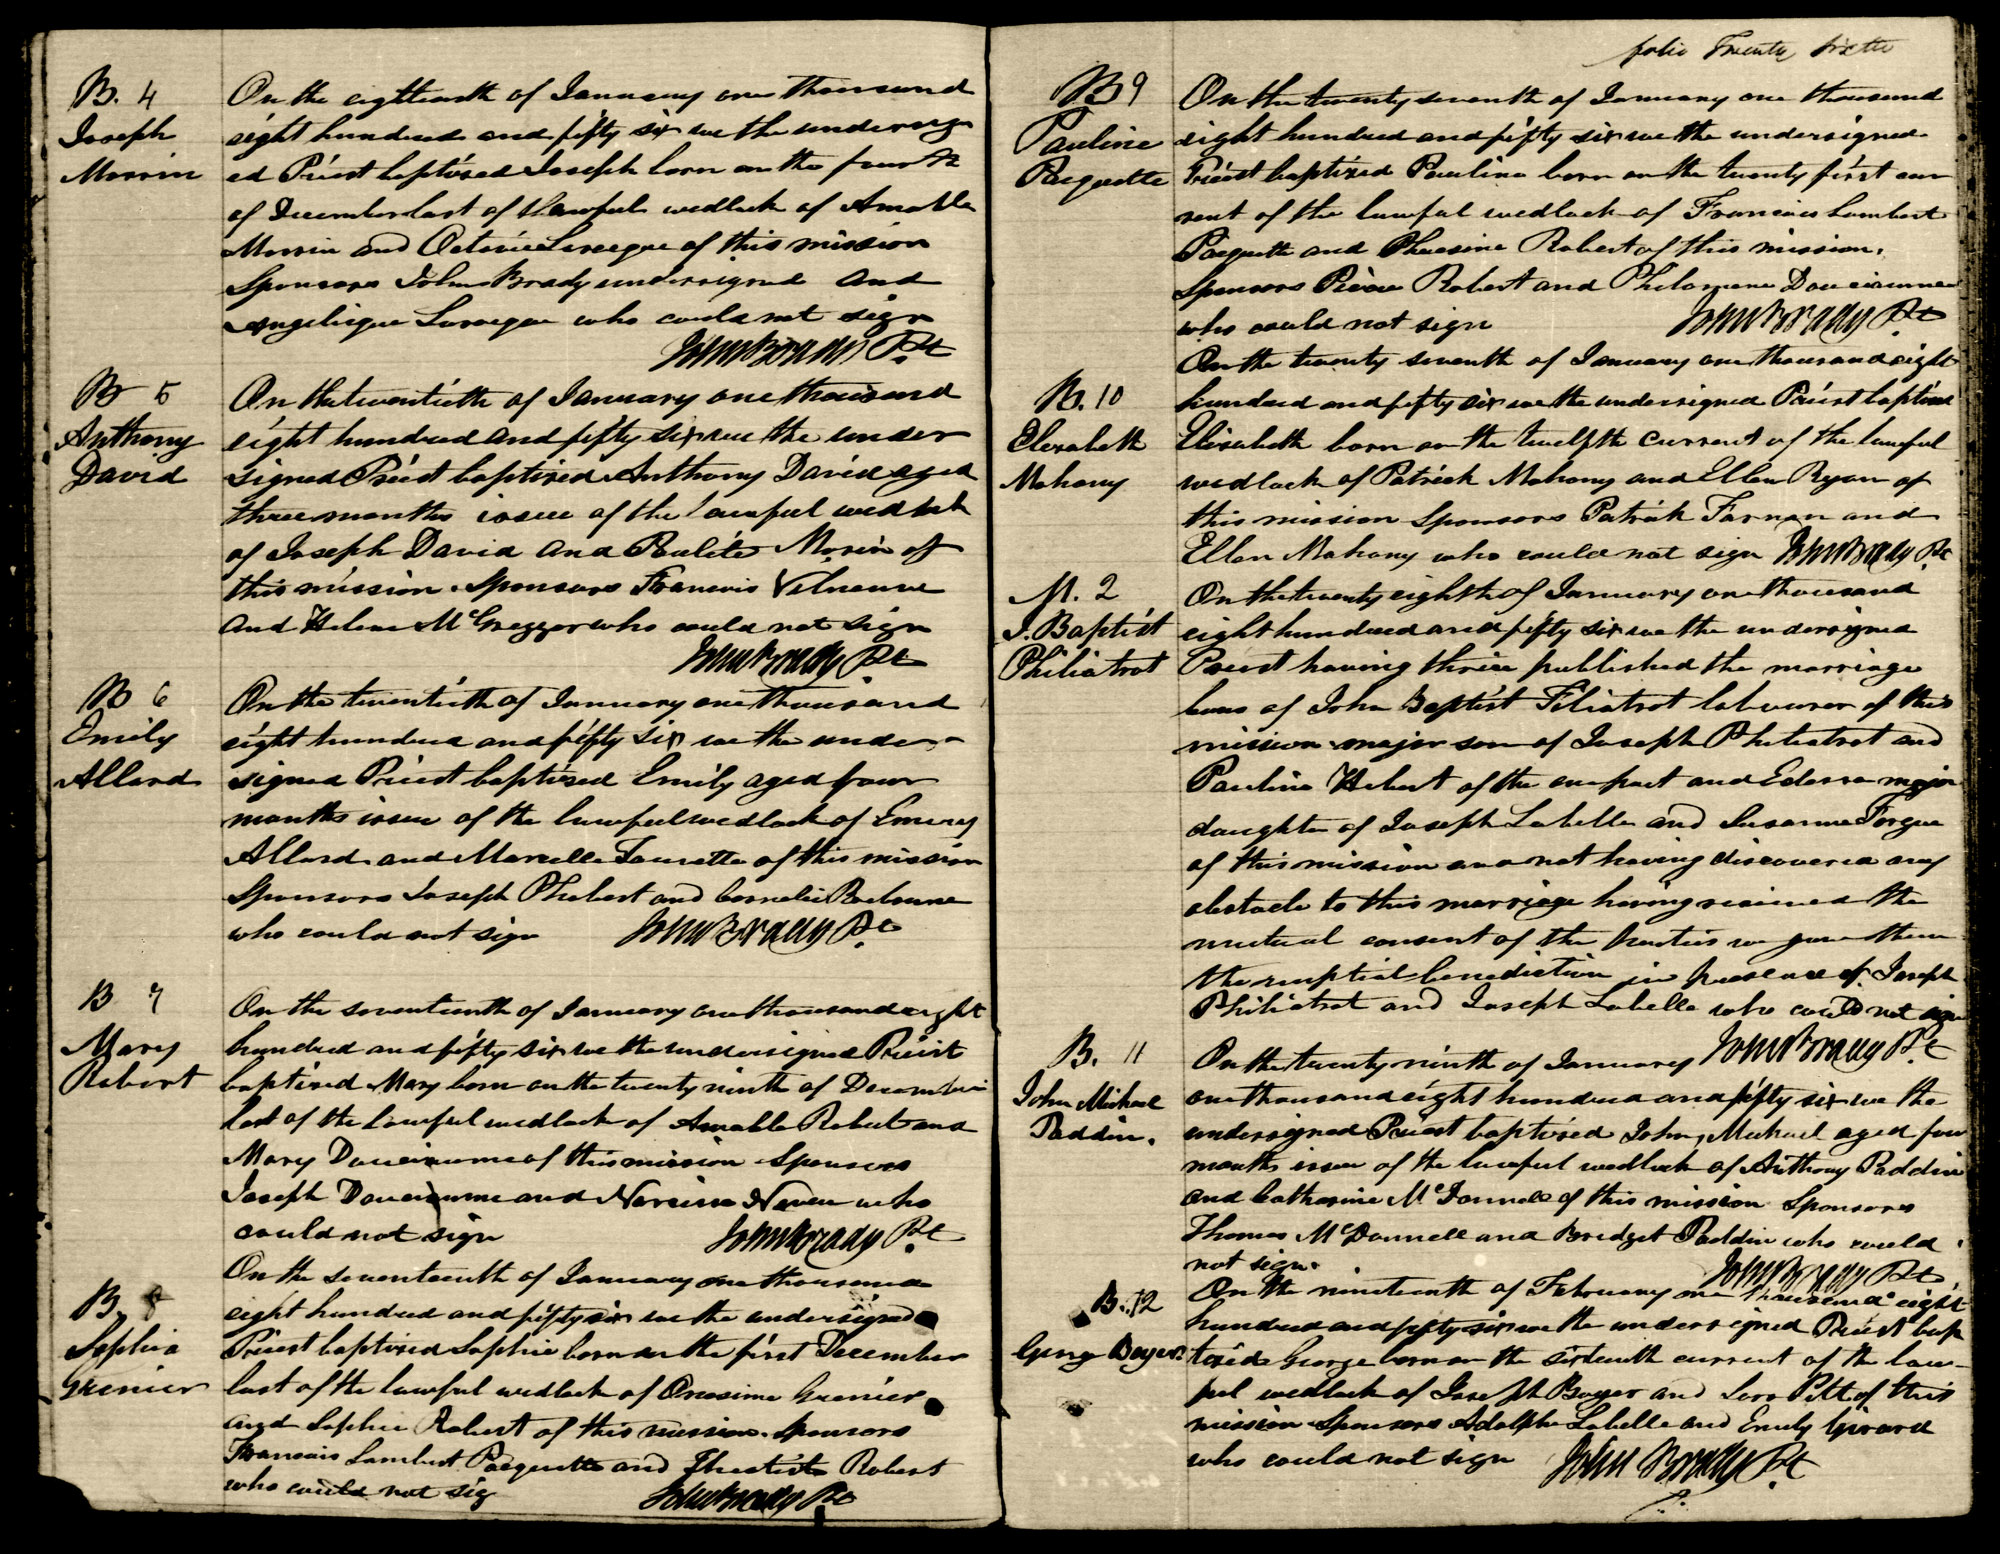 B. 4
Joseph
Morrin
On the eighteenth of January one thousand
eight hundred and fifty six we the undersign
ed Priest baptized Joseph born on the fourth
of December last of lawful wedlock of Amable
Morrin and Octavie of this mission
Sponsors John Brady undersigned and
Angelique who could not sign
John Brady Pt
B 5
Anthony
David
On the twentieth of January one thousand
eight hundred and fifty six we the under
signed Priest baptized Anthony David aged
three months issue of the lawful wedlock
of Joseph David and Morin of
this mission Sponsors Francois Vilneuve
and Helene McGreggor who could not sign
John Brady Pt
B 6
Emily
Allard
On the twentieth of January one thousand
eight hundred and fifty six we the under-
signed Priest baptized Emily aged four
months issue of the lawful wedlock of Emery
Allard and Marcelle of this mission
Sponsors Joseph and
who could not sign John Brady Pt
B 7
Mary
Robert
On the seventeenth of January one thousand eight
hundred and fifty six we the undersigned Priest
baptized Mary born on the twenty ninth of December
last of the lawful wedlock of Amable Robert and
Mary of this mission Sponsors
Joseph and Narcisse Neveu who
could not sign John Brady Pt
B. 8
Sophia
Grenier
On the seventeenth of January one thousand
eight hundred and fifty six we the undersigned
Priest baptized Sophie born on the first December
last of the lawful wedlock of Onesime Grenier
and Sophie Robert of this mission. Sponsors
Francois Lambert Paquette and Robert
who could not sig John Brady Pt
folio Twenty sixth
B 9
Pauline
Paquette
On the twenty seventh of January one thousand
eight hundred and fifty six we the undersigned
Priest baptized Pauline born on the twenty first cur
rent of the lawful wedlock of Francois Lambert
Paquette and Robert of this mission.
Sponsors Pierre Robert and Philomene
who could not sign John Brady Pt
B. 10
Elizabeth
Mahony
On the twenty seventh of January one thousand eight
hundred and fifty six we the undersigned Priest baptized
Elisabeth born on the twelfth current of the lawful
wedlock of Patrick Mahony and Ellen Ryan of
this mission Sponsors Patrick Farnan and
Ellen Mahony who could not sign John Brady Pt
M. 2
J. Baptist
Philiatrot
On the twenty eighth of January one thousand
eight hundred and fifty six we the undersigned
Priest having thrice published the marriage
bans of John Baptist Filiatrot labourer of this
mission major son of Joseph Philiatrot and
Pauline Hebert of the one part and major
daughter of Joseph Labelle and Susanne Forgue
of this mission and not having discovered any
obstacle to this marriage having received the
mutual consent of the parties we gave them
the nuptial benediction in presence of Joseph
Philiatrot and Joseph Labelle who could not sign
John Brady Pt
B. 11
John Michael
Paddin.
On the twenty ninth of January
one thousand eight hundred and fifty six we the
undersigned Priest baptized John Michael aged four
months issue of the lawful wedlock of Anthony Paddin
and Catharine McDonnell of this mission Sponsors
Thomas McDonnell and Bridget Paddin who could
not sign. John Brady Pt
B. 12
George Boyer
On the nineteenth of February one thousand eight
hundred and fifty six we the undersigned Priest bap
tized George born on the sixteenth current of the law-
ful wedlock of Joseph Boyer and Pitt of this
mission Sponsors Adolphe Labelle and Emily Girard
who could not sign John Brady Pt